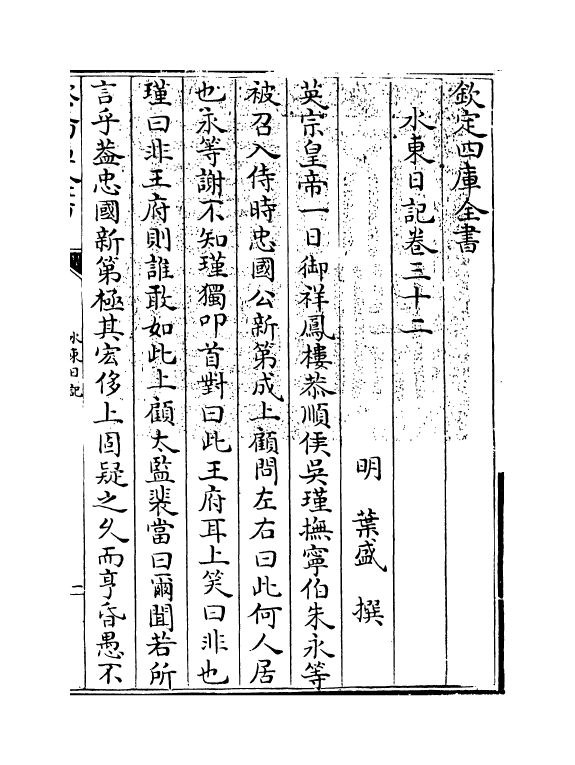 欽定四庫全書
水東日記卷三十二
明 葉盛 撰
英宗皇帝一日御祥鳳樓恭順侯吳瑾撫寧伯朱永等
被召入侍時忠國公新第成上顧問左右曰此何人居
也永等謝不知瑾獨叩首對曰此王府耳上笑曰非也
瑾曰非王府則誰敢如此上顧太監裴當曰爾聞若所
言乎葢忠國新第極其宏侈上固疑之乆而亨昏愚不
水東日記